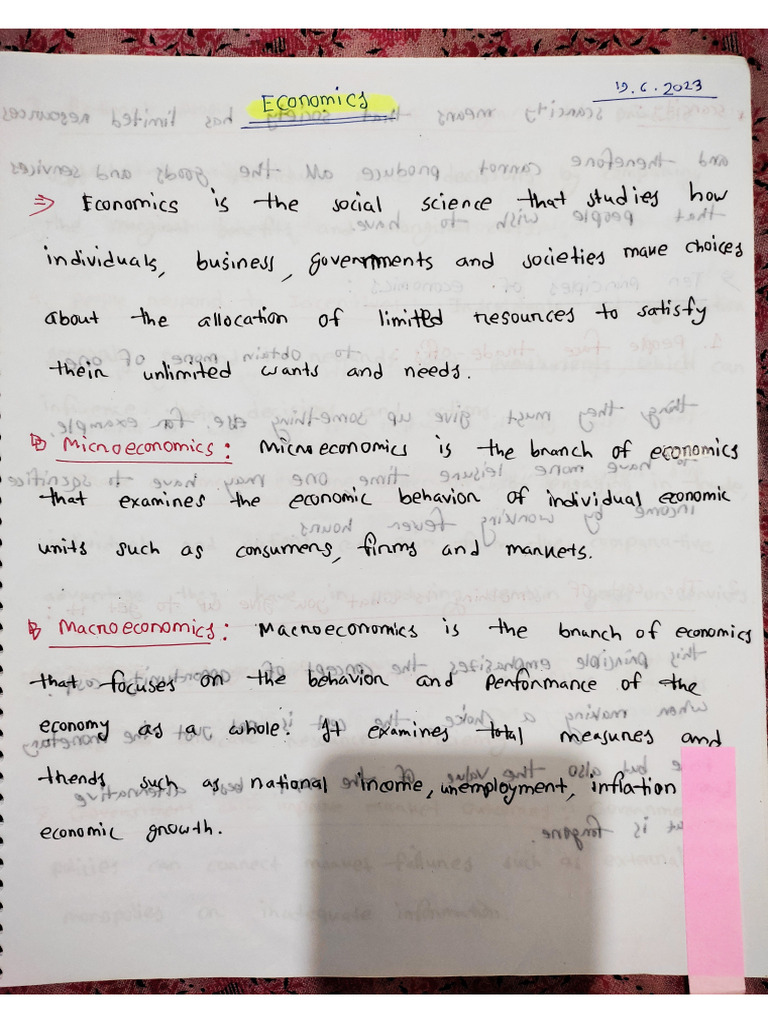 Economics
19.6.2023
⇒ Economics is the social science that studies how
individuals, business, governments and societies make choices
about the allocation of limited resources to satisfy
their unlimited wants and needs.
Microeconomics: Microeconomics is the branch of economics
that examines the economic behavior of individual economic
units such as consumers, firms and markets.
Macroeconomics: Macroeconomics is the branch of economics
that focuses on the behavior and performance of the
economy as a whole. It examines total measures and
trends such as national income, unemployment, inflation
economic growth.